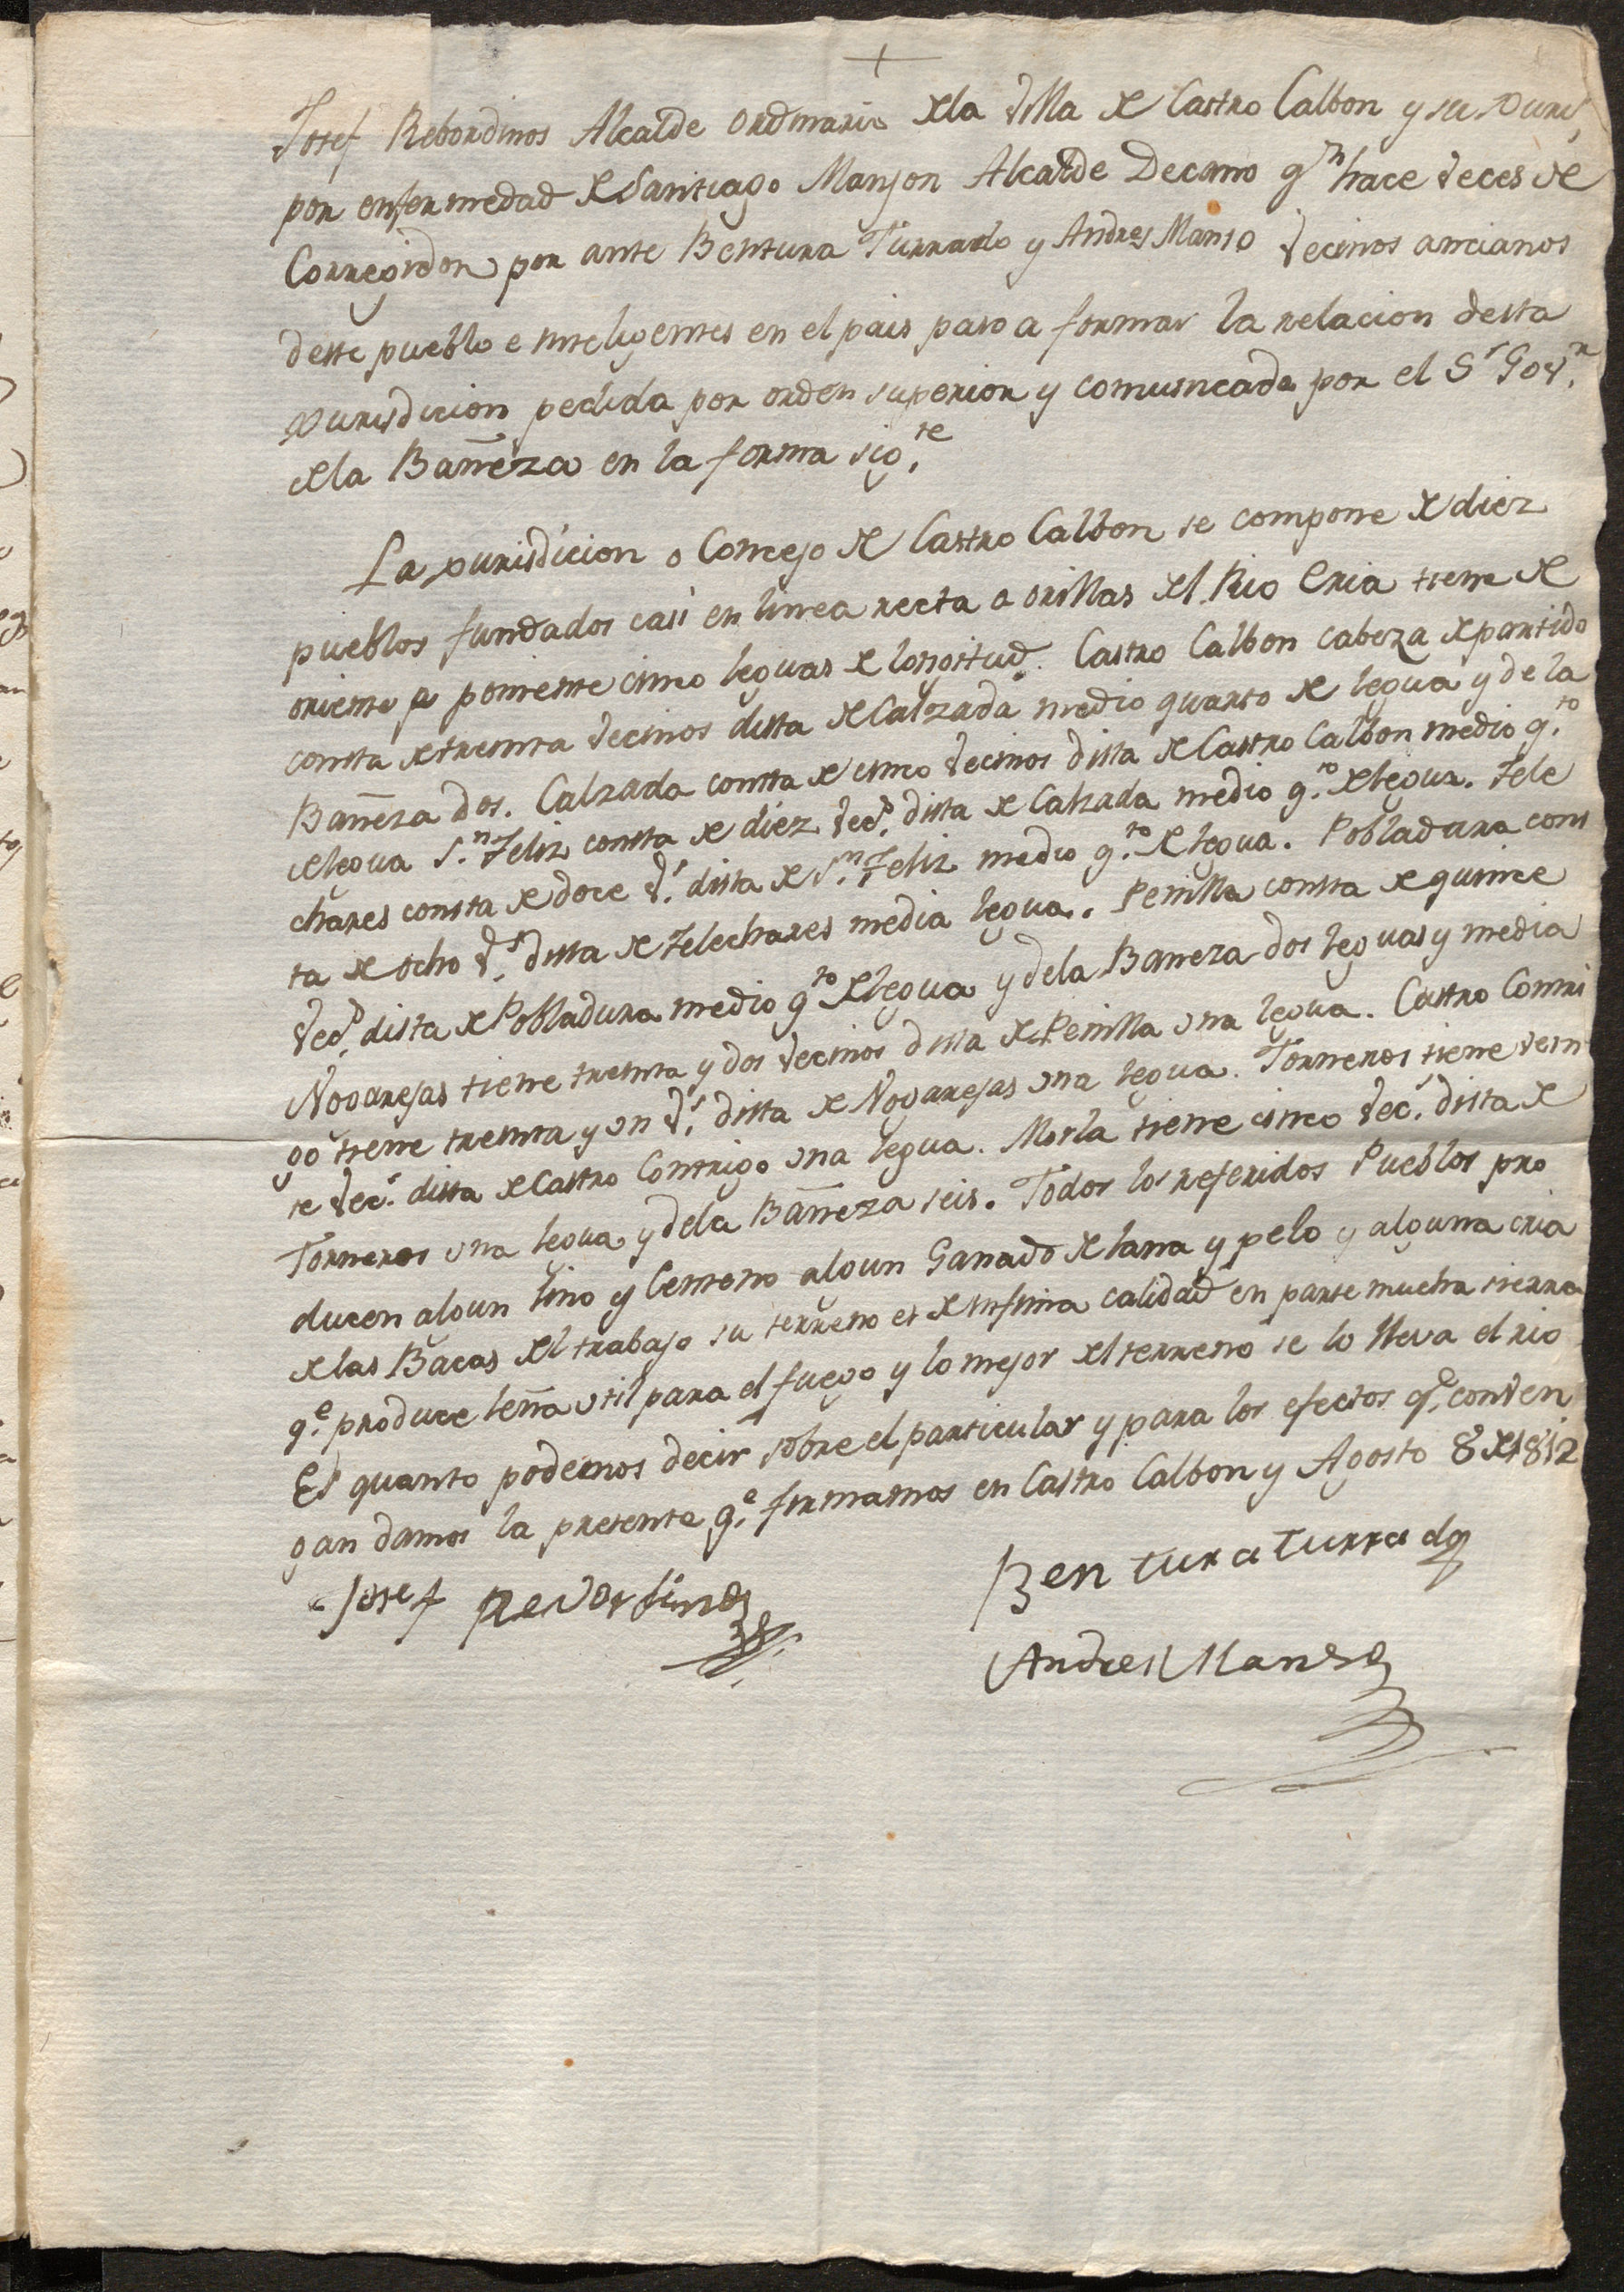 +
Josef Rebordinos Alcalde ordinario de la Villa de Castro Calbon y su Juris.
por enfermedad de Santiago Manjon Alcalde Decano qn hace veces de
Corregidor, por ante Bentura Turrado y Andres Manso vecinos ancianos
deste pueblo e inteligentes en el pais paso a formar la relacion desta
Jurisdicion pedida por orden superior y comunicada por el Sr Gov.r
de la Bañeza en la forma sig.te
La jurisdicion o Concejo de Castro Calbon se compone de diez
pueblos fundados casi en linea recta a orillas del Rio Eria tiene de
oriente a poniente cinco leguas de longitud. Castro Calbon cabeza de partido
consta de treinta vecinos dista de Calzada medio quarto de legua y de la
Bañeza dos. Calzada consta de cinco vecinos dista de Castro Calbon medio q.to
de legua S.n Feliz consta de diez vec.s dista de Calzada medio q.to de legua. Fele
chares consta de doce v.s dista de S.n Feliz medio q.to de legua. Pobladura cons
ta de ocho v.s dista de Felechares media legua. Penilla consta de quince
vec.s dista de Pobladura medio q.to de legua y de la Bañeza dos leguas y media
Nogarejas tiene treinta y dos vecinos dista de Penilla una legua. Castro Contri
go tiene treinta y un v.s dista de Nogarejas una legua. Torneros tiene vein
te vec.s dista de Castro Contrigo una legua. Morla tiene cinco vec.s dista de
Torneros una legua y de la Bañeza seis. Todos los referidos Pueblos pro
ducen algun lino y Centeno algun Ganado de lana y pelo y alguna cria
de las Bacas del trabajo su terreno es de infima calidad en parte mucha sierra
q.e produce leña util para el fuego y lo mejor del terreno se lo lleva el rio
Es quanto podemos decir sobre el particular y para los efectos q.e conven
gan damos la presente q.e firmamos en Castro Calbon y Agosto 8 de 1812
Josef Revordinos
Bentura Turrado
Andres Manso